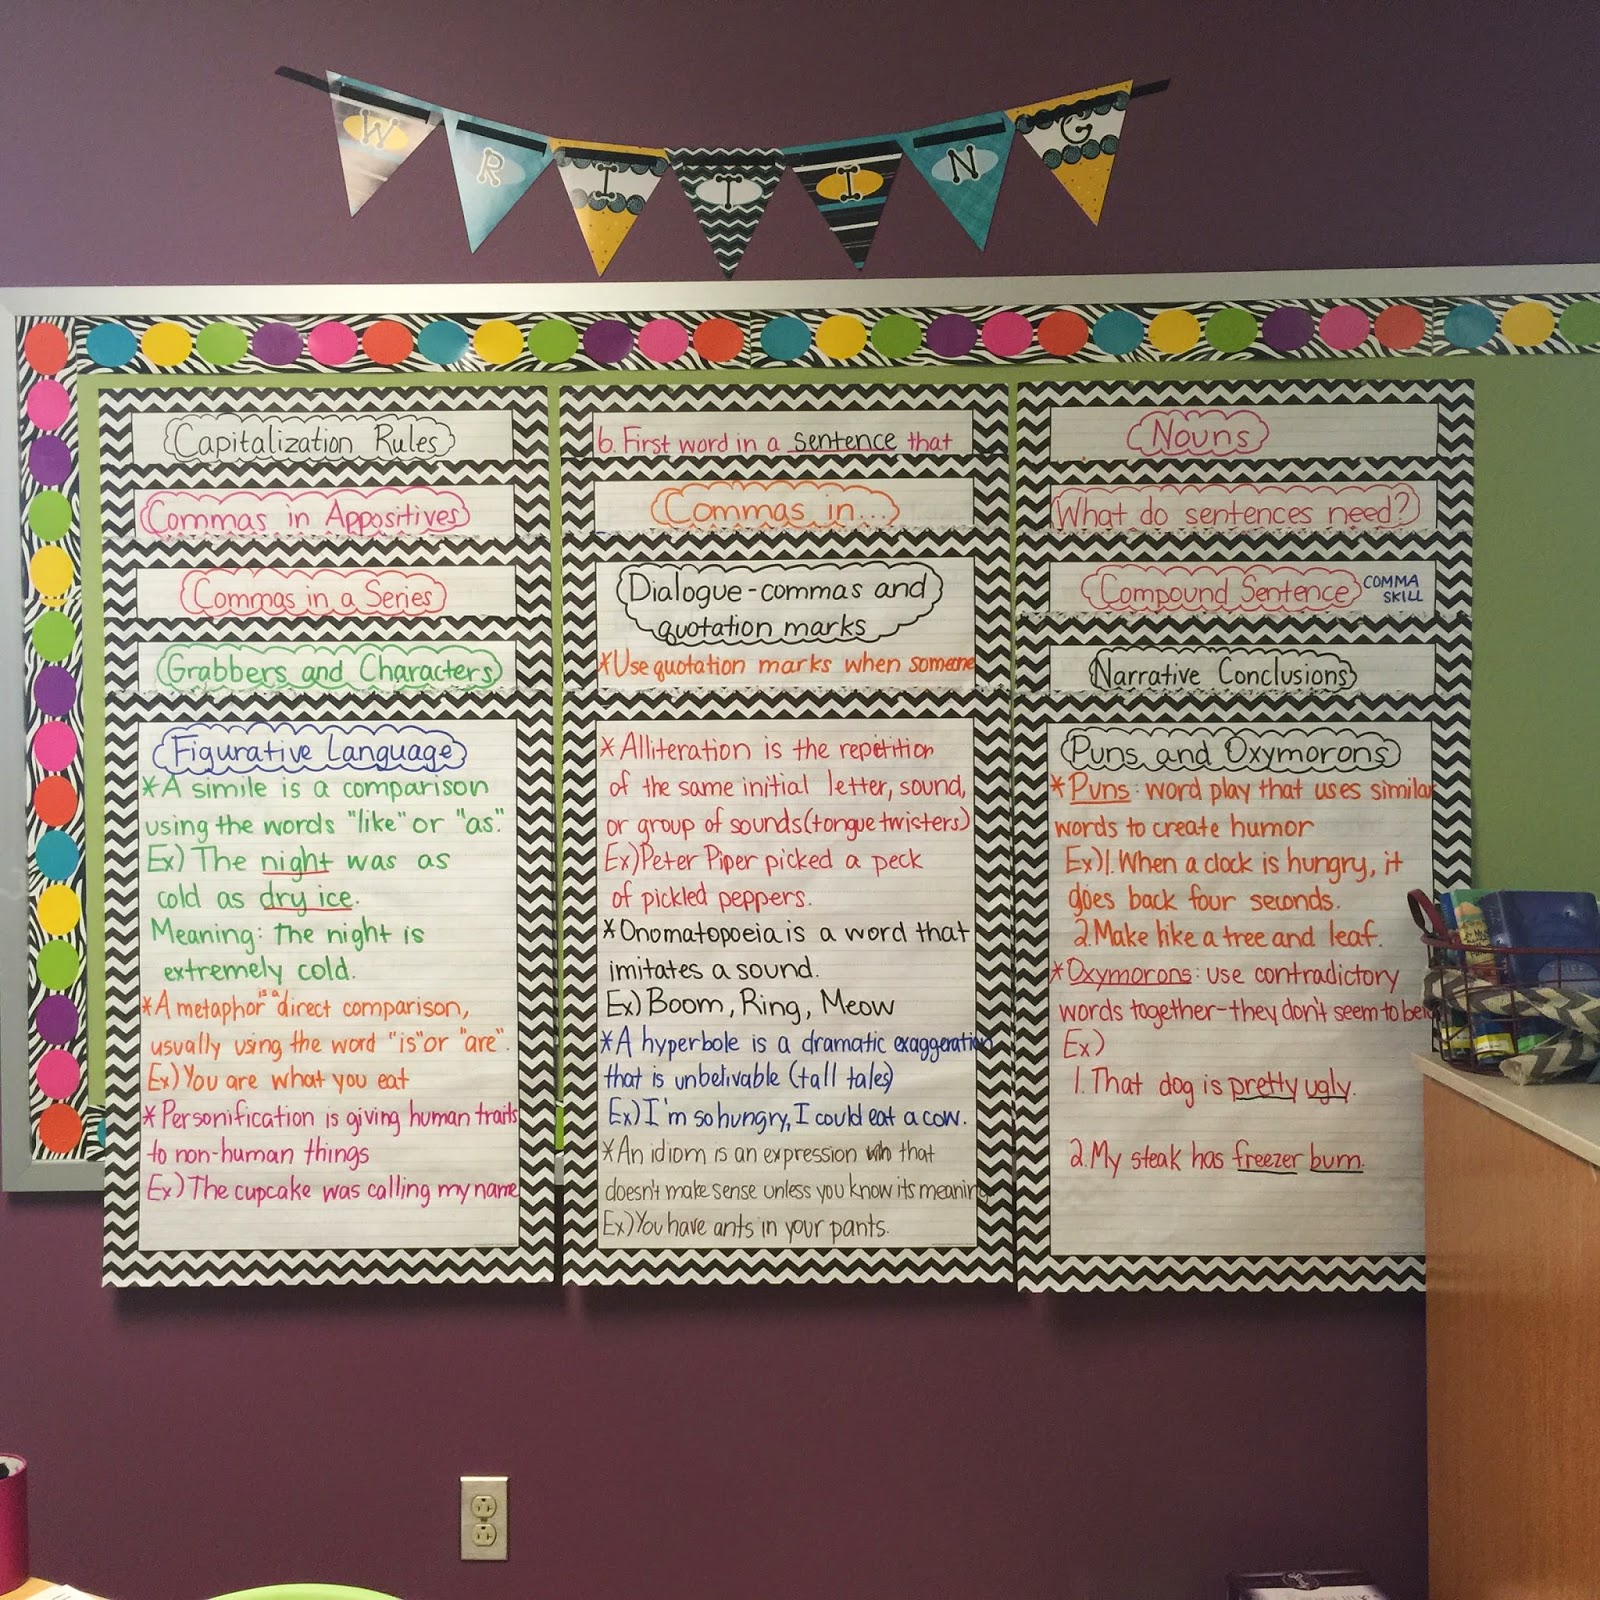 WRITING
Capitalization Rules
Commas in Appositives
Commas in a Series
Grabbers and Characters
Figurative Language
*A simile is a comparison
using the words "like" or "as."
Ex) The night was as
cold as dry ice.
Meaning: The night is
extremely cold.
*A metaphor is a direct comparison,
usually using the word "is" or "are".
Ex) You are what you eat
*Personification is giving human traits
to non-human things
Ex) The cupcake was calling my name
6. First word in a sentence that
Commas in...
Dialogue-commas and
quotation marks
*Use quotation marks when someone
*Alliteration is the repetition
of the same initial letter, sound,
or group of sounds (tongue twisters)
Ex) Peter Piper picked a peck
of pickled peppers.
*Onomatopoeia is a word that
imitates a sound.
Ex) Boom, Ring, Meow
*A hyperbole is a dramatic exaggeration
that is unbelivable (tall tales)
Ex) I'm so hungry, I could eat a cow.
*An idiom is an expression that
doesn't make sense unless you know its meaning
Ex) You have ants in your pants.
Nouns
What do sentences need?
Compound Sentence COMMA
SKILL
Narrative Conclusions
Puns and Oxymorons
*Puns: word play that uses similar
words to create humor
Ex) 1. When a clock is hungry, it
goes back four seconds.
2. Make like a tree and leaf.
*Oxymorons: use contradictory
words together-they don't seem to
Ex)
1. That dog is pretty ugly.
2. My steak has freezer burn.